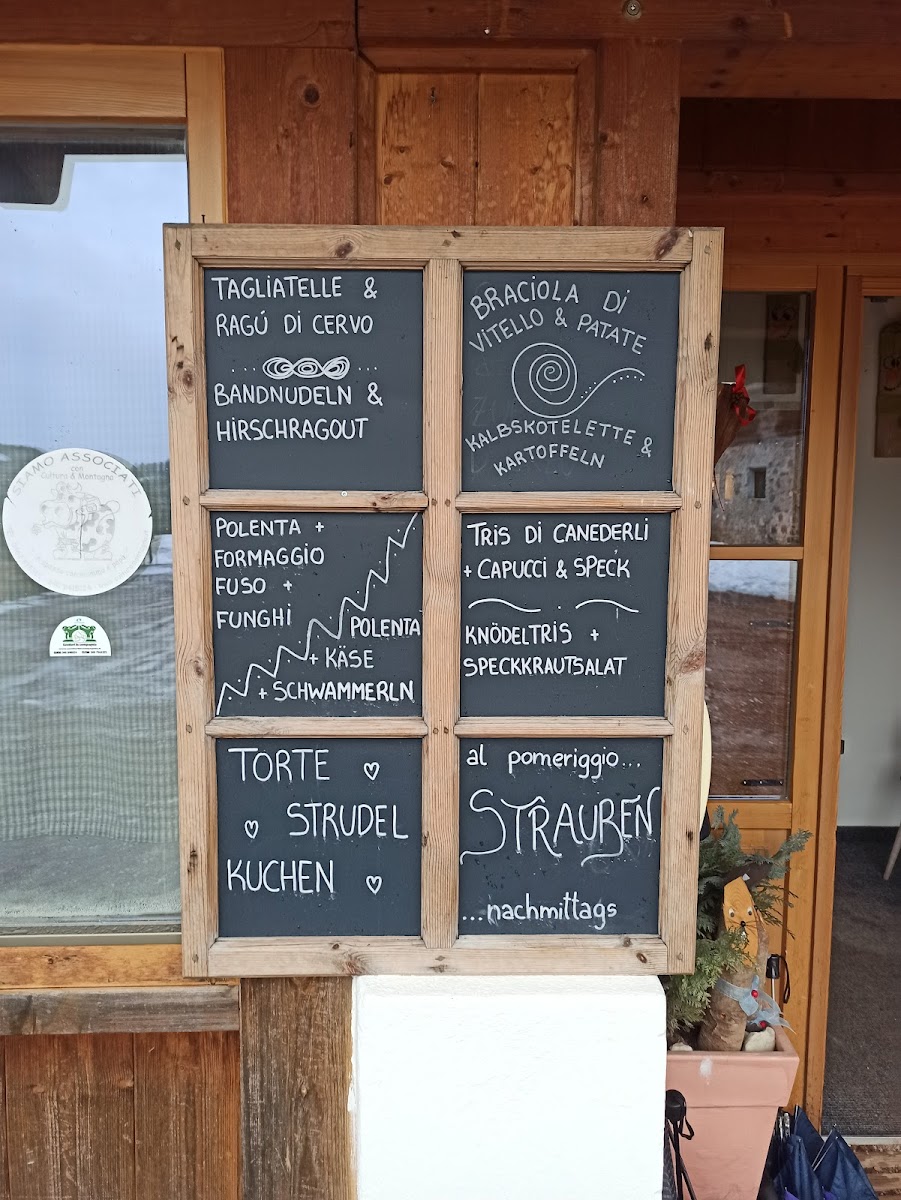 TAGLIATELLE &
RAGÚ DI CERVO
BANDNUDELN &
HIRSCHRAGOUT
BRACIOLA DI
VITELLO & PATATE
KALBSKOTELETTE &
KARTOFFELN
POLENTA +
FORMAGGIO
FUSO +
FUNGHI
POLENTA
+ KÄSE
+ SCHWAMMERLN
TRIS DI CANEDERLI
+ CAPUCCI & SPECK
KNÖDELTRIS +
SPECKKRAUTSALAT
TORTE
STRUDEL
KUCHEN
al pomeriggio...
STRAUBEN
...nachmittags
SIAMO ASSOCIATI
con
Cultura & Montagna